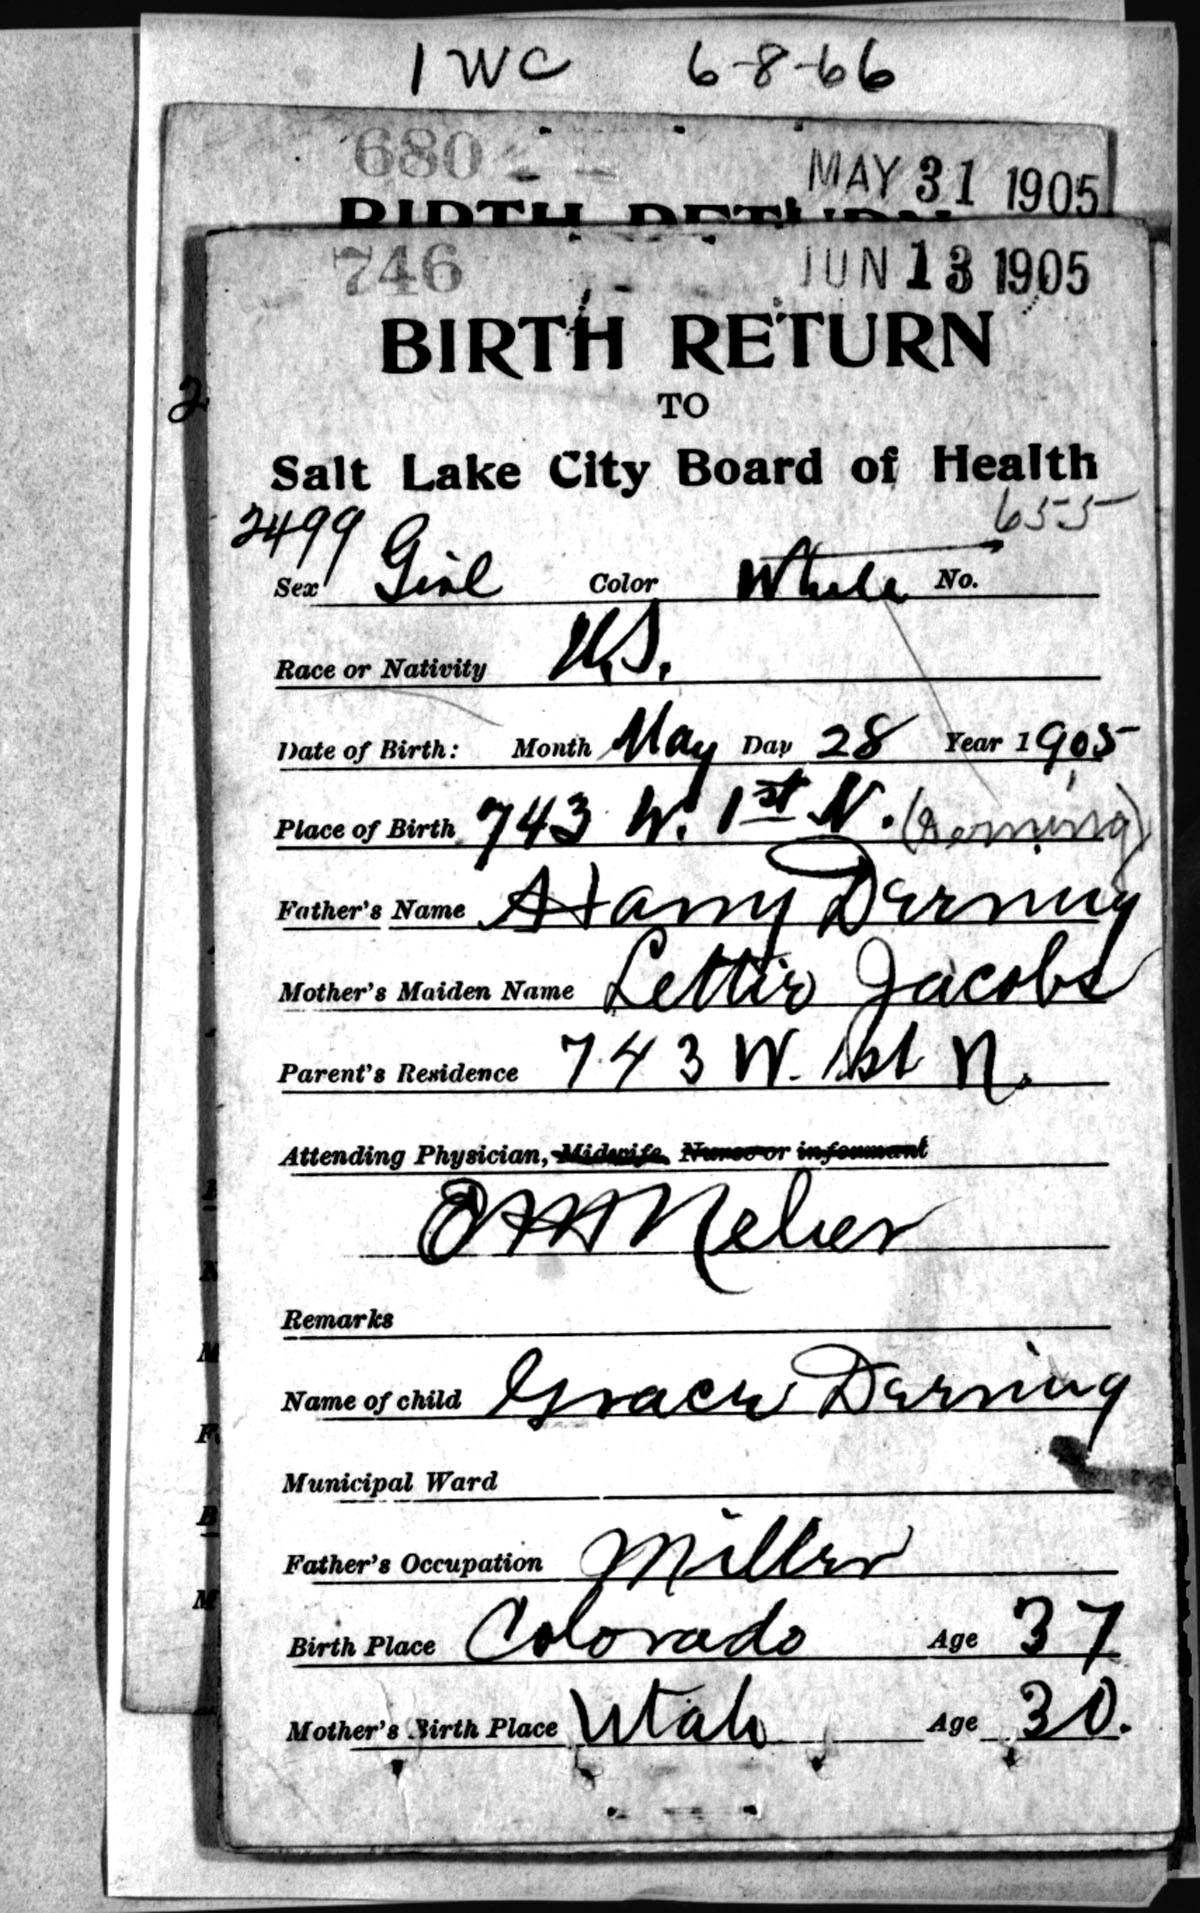 1 WC 6-8-66
680 MAY 31 1905
BIRTH RETURN
746 JUN 13 1905
BIRTH RETURN
TO
2
Salt Lake City Board of Health
2499 655
Sex Girl Color White No.
Race or Nativity U.S.
Date of Birth: Month May Day 28 Year 1905
Place of Birth 743 W. 1st N.
Father's Name Harry Derning
Mother's Maiden Name Lettie Jacobs
Parent's Residence 743 W. 1st N.
Attending Physician, Midwife, Nurse or informant
Remarks
Name of child Gracie Derning
Municipal Ward
Father's Occupation Miller
Birth Place Colorado Age 37
Mother's Birth Place Utah Age 30.